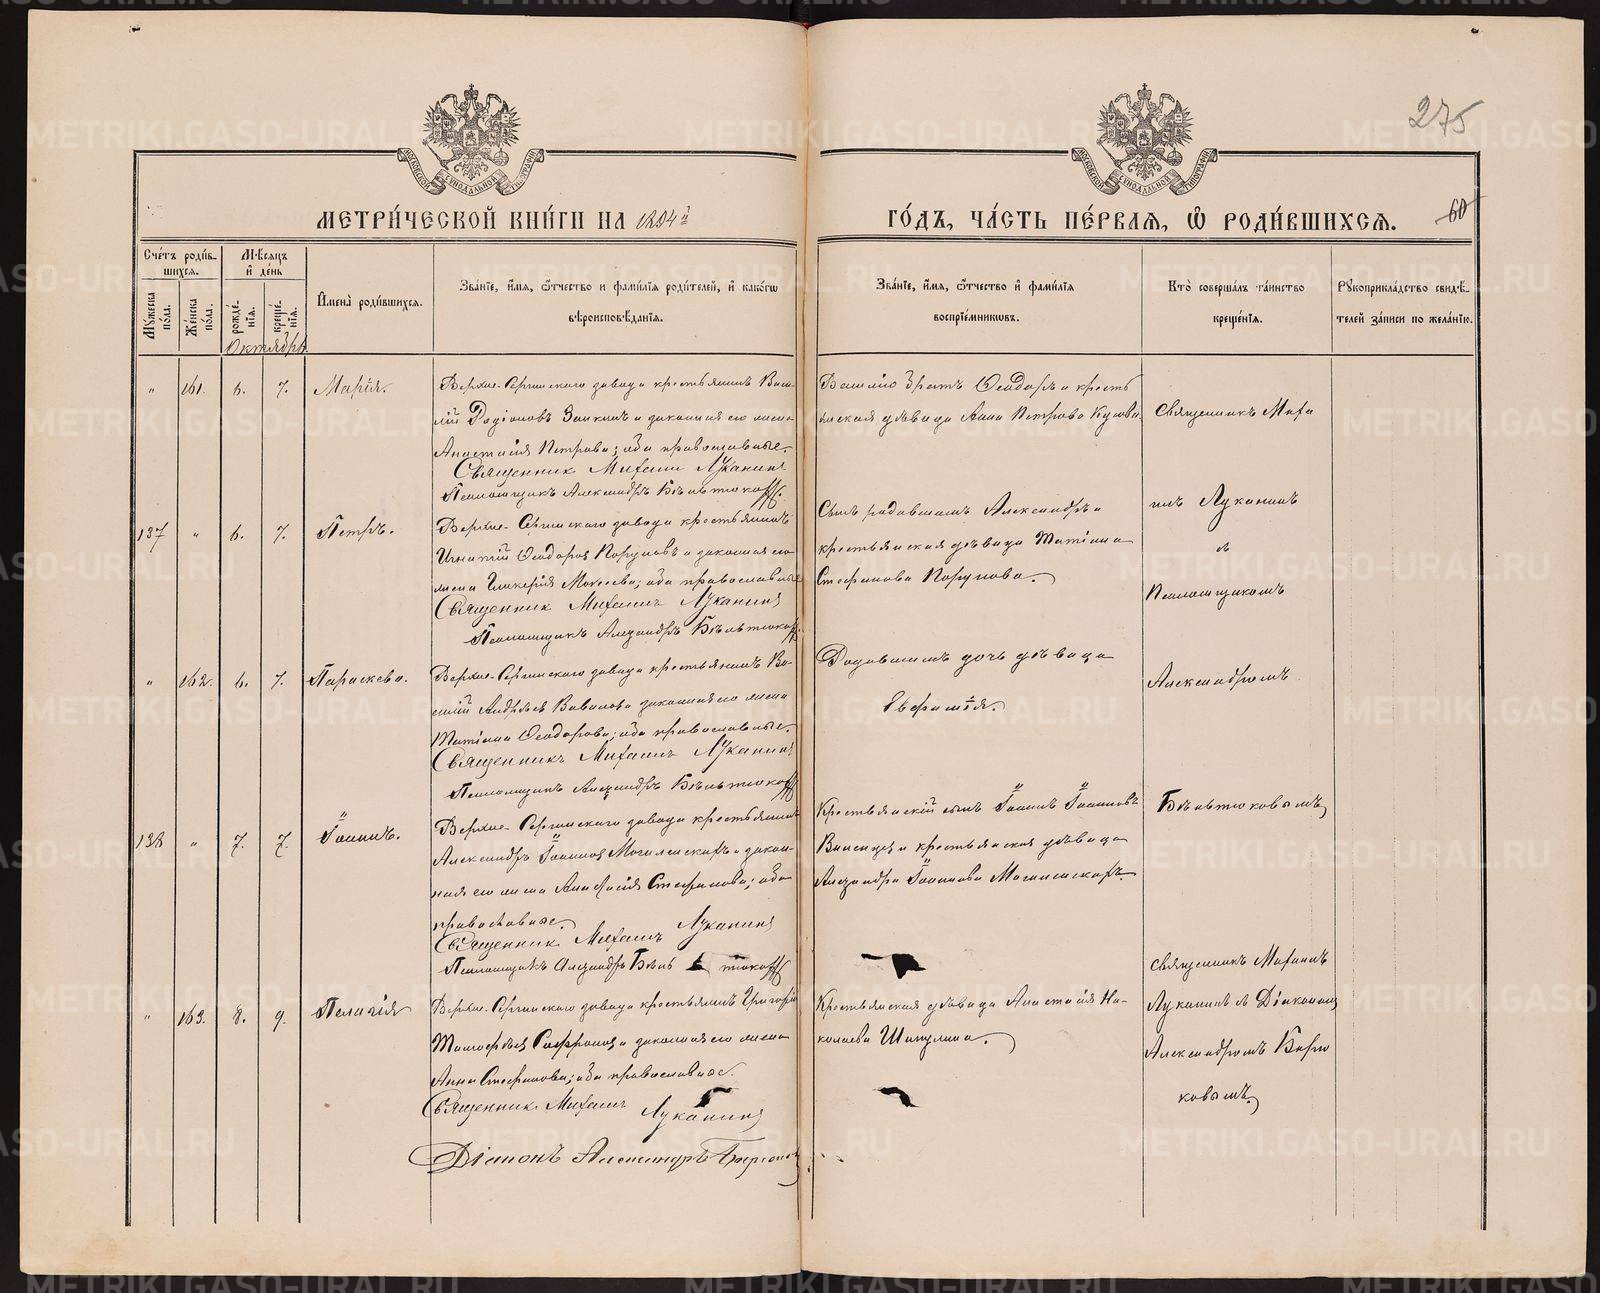 275
МОСКОВСКОЙ СѴНОДАЛЬНОЙ ТИПОГРАФІИ
МОСКОВСКОЙ СѴНОДАЛЬНОЙ ТИПОГРАФІИ
МЕТРИ́ЧЕСКОЙ КНИ́ГИ НА 1894й
ГО́ДЪ, ЧА́СТЬ ПЕ́РВАЯ, Ѡ РОДИ́ВШИХСЯ.
60
Сче́тъ роди́вшихся.
Му́жеска по́ла.
Же́нска по́ла.
Мѣ́сяцъ и де́нь
рожде́нія.
креще́нія.
Имена́ роди́вшихся.
Зва́ніе, и́мя, ѻ́тчество и фами́лія роди́телей, и како́гѡ вѣроисповѣ́данія.
Зва́ніе, и́мя, ѻ́тчество и фами́лія воспріе́мникѡвъ.
Кто̀ соверша́лъ та́инство креще́нія.
Рукоприкла́дство свидѣ́телей за́писи по жела́нію.
Октябрь
" 161. 6. 7. Марія.
Верхне-Сергинскаго завода крестьянинъ Васи-
лій Родіоновъ Заикинъ и законная его жена
Анастасія Петрова; оба православные.
Священник Михаил Луканинъ
Псаломщикъ Александръ
Ѳеодоръ и кресть
янская дѣвица Анна Петрова
Священникъ Миха
иломъ Луканинъ
съ
Псаломщикомъ
Александромъ
137 " 6. 7. Петръ.
Верхне-Сергинскаго завода крестьянинъ
Игнатій Ѳеодоровъ и законная его
жена Гликерія Моисеева; оба православные
Священник Михаилъ Луканинъ
Псаломщикъ Александръ
Сынъ родившимъ Александръ и
крестьянская дѣвица Татіана
Стефанова
" 162. 6. 7. Параскева.
Верхне-Сергинскаго завода крестьянинъ Ва-
силій Андреевъ и законная его жена
Татіана Ѳеодорова; оба православные.
Священникъ Михаилъ Луканинъ
Псаломщикъ Александръ
Родившимъ дочь дѣвица
Евфимія.
138 " 7. 7. Іоаннъ.
Верхне-Сергинскаго завода крестьянинъ
Александръ Іоанновъ Могиленскихъ и закон-
ная его жена Анастасія Стефанова; оба
православные.
Священник Михаилъ Луканинъ
Псаломщикъ Александръ
Крестьянскій сынъ Іоаннъ Іоанновъ
и крестьянская дѣвица
Александра Іоаннова Могиленскихъ.
" 163. 8. 9. Пелагія
Верхне-Сергинскаго завода крестьянинъ Григорій
Тимофеевъ Сафроновъ и законная его жена
Анна Стефанова; оба православные.
Священник Михаилъ Луканинъ
Діаконъ Александръ
Крестьянская дѣвица Анастасія Ни-
колаева Шипулина.
Священникъ Михаилъ
Луканинъ съ Діакономъ
Александромъ Бирю
ковымъ.